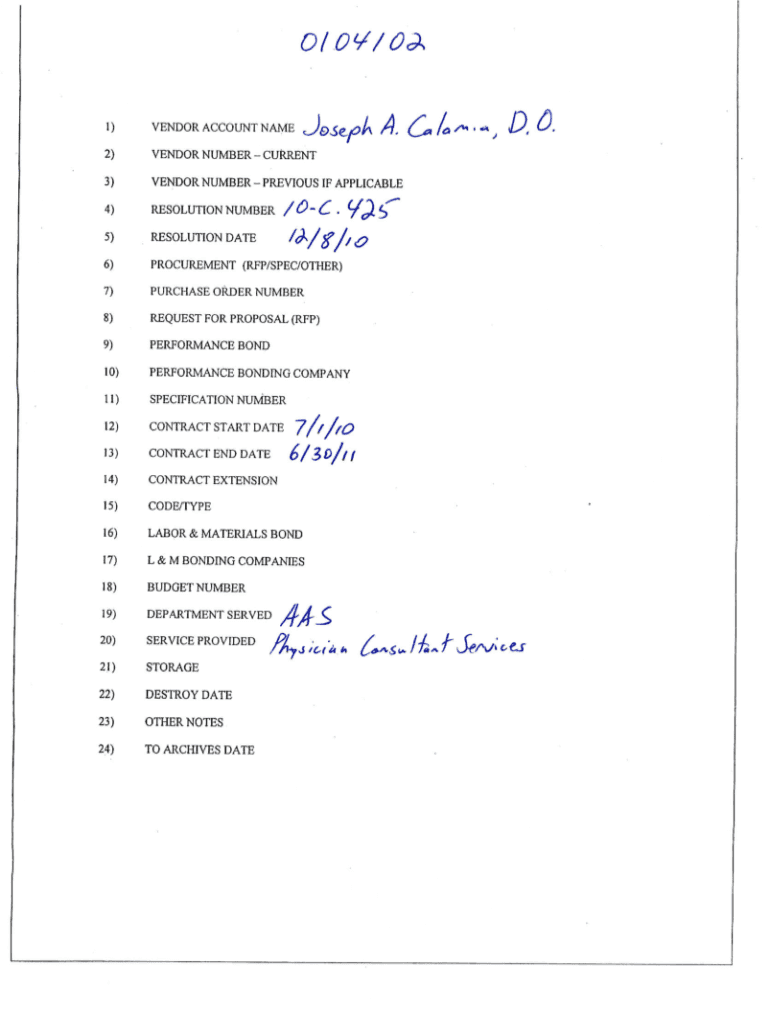 0104102
1) VENDOR ACCOUNT NAME Joseph A. Calamia, D.O.
2) VENDOR NUMBER – CURRENT
3) VENDOR NUMBER – PREVIOUS IF APPLICABLE
4) RESOLUTION NUMBER 10-C.425
5) RESOLUTION DATE 12/8/10
6) PROCUREMENT (RFP/SPEC/OTHER)
7) PURCHASE ORDER NUMBER
8) REQUEST FOR PROPOSAL (RFP)
9) PERFORMANCE BOND
10) PERFORMANCE BONDING COMPANY
11) SPECIFICATION NUMBER
12) CONTRACT START DATE 7/1/10
13) CONTRACT END DATE 6/30/11
14) CONTRACT EXTENSION
15) CODE/TYPE
16) LABOR & MATERIALS BOND
17) L & M BONDING COMPANIES
18) BUDGET NUMBER
19) DEPARTMENT SERVED AAS
20) SERVICE PROVIDED Physician Consultant Services
21) STORAGE
22) DESTROY DATE
23) OTHER NOTES
24) TO ARCHIVES DATE